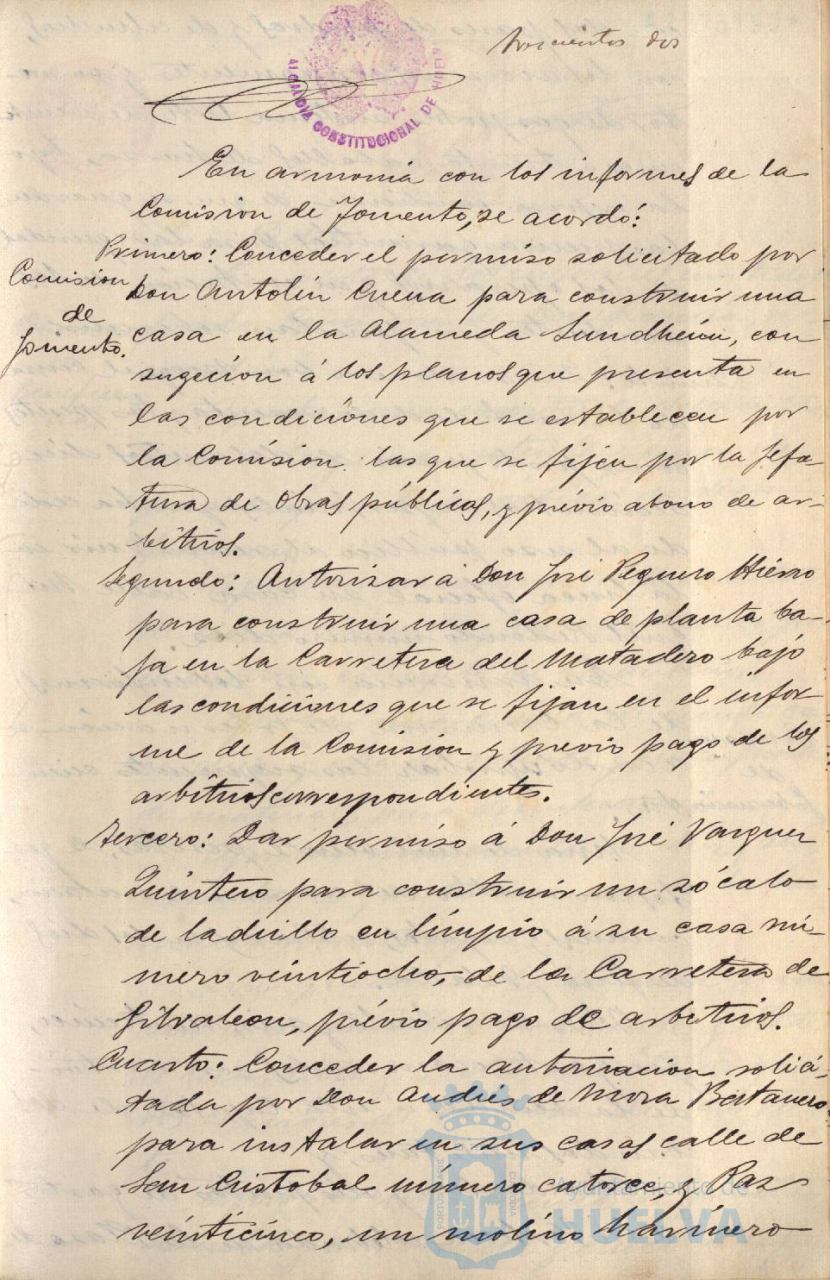 trescientos dos
ALCALDIA CONSTITUCIONAL DE HUELVA
En armonia con los informes de la
Comision de Fomento, se acordó:
Comision
de
Fomento.
Primero: Conceder el permiso solicitado por
Don Antolín Cuena para construir una
casa en la Alameda Sundheim, con
sugecion á los planos que presenta en
las condiciones que se establecen por
la Comision las que se fijen por la Jefa-
tura de Obras públicas, y prévio abono de ar-
bitrios.
Segundo: Autorizar á Don José Peguero Hierro
para construir una casa de planta ba-
ja en la Carretera del Matadero bajo
las condiciones que se fijan en el infor
me de la Comision y previo pago de los
arbitrios correspondientes.
Tercero: Dar permiso á Don José Vazquez
Quintero para construir un zócalo
de ladrillo en limpio á su casa nú-
mero veintiocho, de la Carretera de
Gibraleon, prévio pago de arbitrios.
Cuarto: Conceder la autorizacion solici-
tada por Don Andrés de Mora
para instalar en sus casas calle de
San Cristobal número catorce y Paz
veinticinco, un molino harinero
Ayuntamiento de
HUELVA